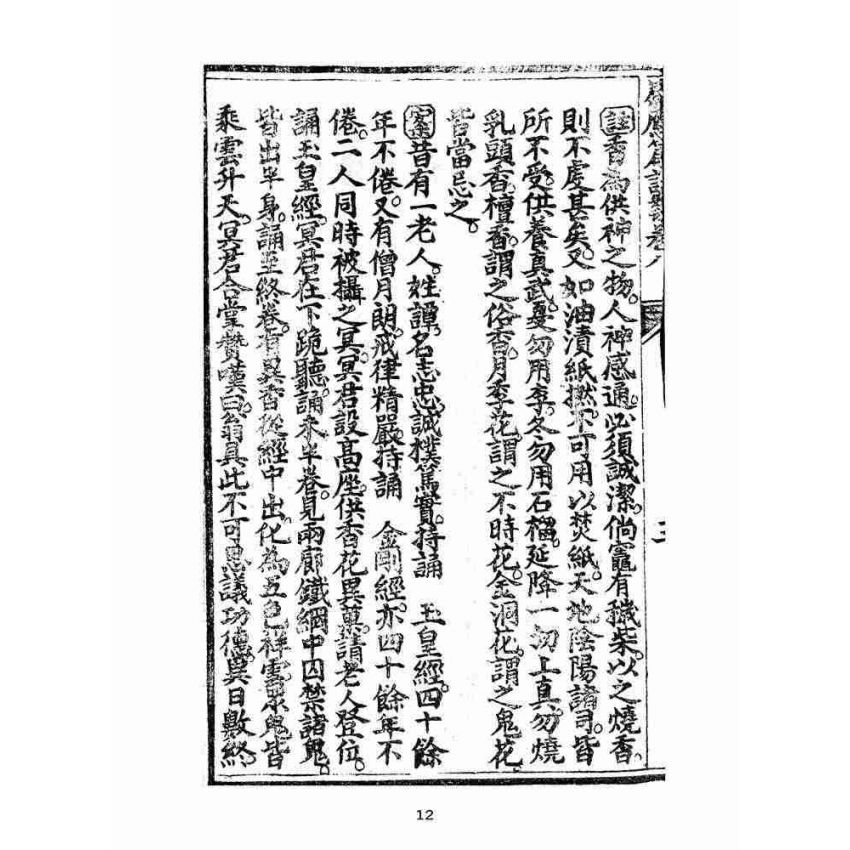 註香為供神之物。人神感通。必須誠潔。倘竈有穢柴。以之燒香。
則不虔甚矣。又如油漬紙撚。不可用以焚紙。天地陰陽諸司。皆
所不受。供養真武。夏勿用李。冬勿用石榴。延降一切上真。勿燒
乳頭香。檀香。謂之俗香。月季花。謂之不時花。金洞花。謂之鬼花。
皆當忌之。
案昔有一老人。姓譚名志忠。誠樸篤實。持誦 玉皇經。四十餘
年不倦。又有僧月朗。戒律精嚴。持誦 金剛經。亦四十餘年不
倦。二人同時被攝之冥。冥君設高座。供香花異菓。請老人登位。
誦玉皇經。冥君在下跪聽。誦未半卷。見兩廊鐵網中囚禁諸鬼。
皆出半身。誦至終卷。有異香從經中出。化為五色祥雲。眾鬼皆
乘雲升天。冥君合掌贊嘆曰。翁具此不可思議功德。異日數終。
12